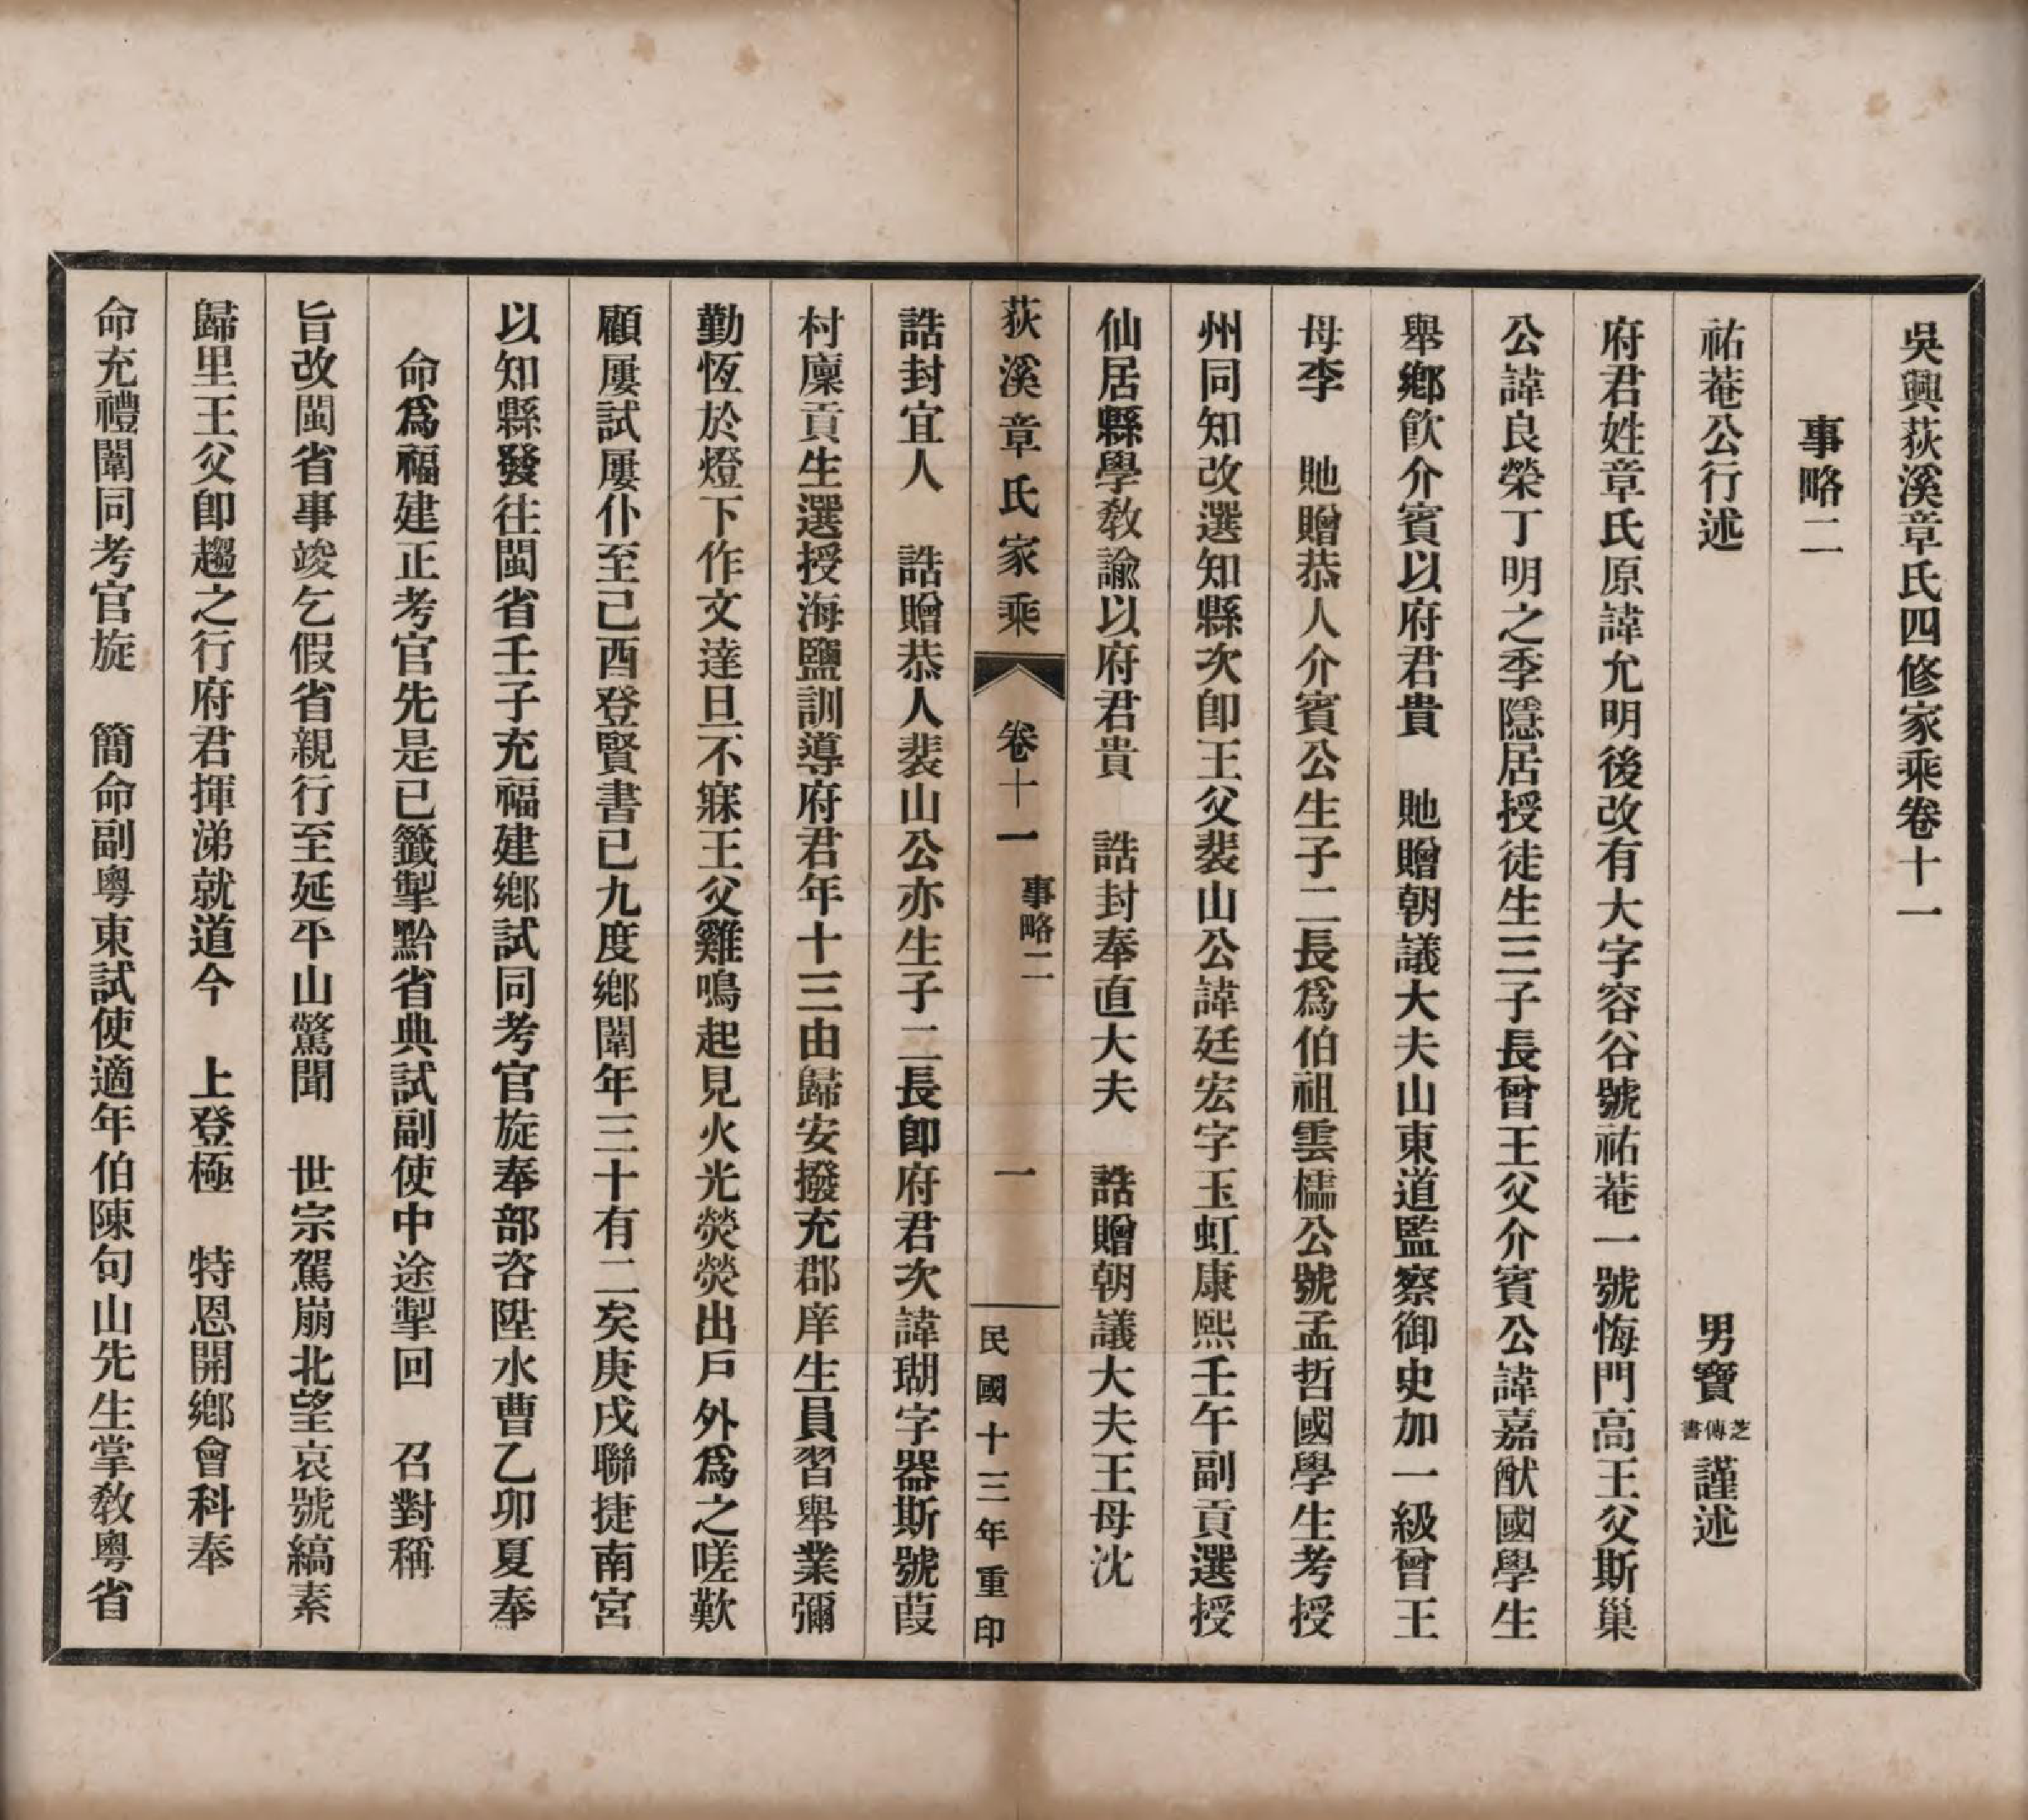 吳興荻溪章氏四修家乘卷十一
事略二
祐菴公行述　男寶傳芝書謹述
府君姓章氏原諱允明後改有大字容谷號祐菴一號悔門高王父斯巢
公諱良榮丁明之季隱居授徒生三子長曾王父介賓公諱嘉猷國學生
舉鄉飮介賓以府君貴　貤贈朝議大夫山東道監察御史加一級曾王
母李　貤贈恭人介賓公生子二長爲伯祖雲檽公號孟哲國學生考授
州同知改選知縣次卽王父裴山公諱廷宏字玉虹康熙壬午副貢選授
仙居縣學敎諭以府君貴　誥封奉直大夫　誥贈朝議大夫王母沈
荻溪章氏家乘　卷十一　事略二　一　民國十三年重印
誥封宜人　誥贈恭人裴山公亦生子二長卽府君次諱瑚字器斯號葭
村廩貢生選授海鹽訓導府君年十三由歸安撥充郡庠生員習舉業彌
勤恆於燈下作文達旦不寐王父雞鳴起見火光熒熒出戶外爲之嗟歎
顧屢試屢仆至己酉登賢書已九度鄉闈年三十有二矣庚戌聯捷南宮
以知縣發往閩省壬子充福建鄉試同考官旋奉部咨陞水曹乙卯夏奉
命爲福建正考官先是已籤掣黔省典試副使中途掣回　召對稱
旨改閩省事竣乞假省親行至延平山驚聞　世宗駕崩北望哀號縞素
歸里王父卽趨之行府君揮涕就道今　上登極　特恩開鄉會科奉
命充禮闈同考官旋　簡命副粵東試使適年伯陳句山先生掌敎粵省